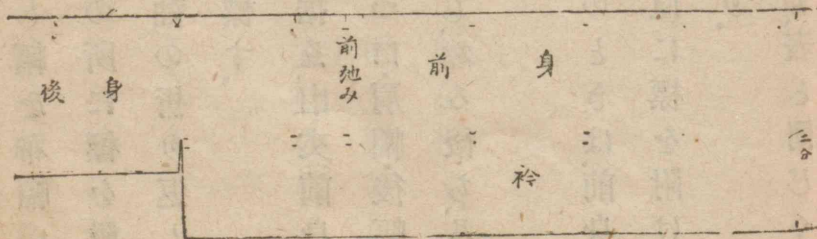 後身
前弛み
前身
衿
二分